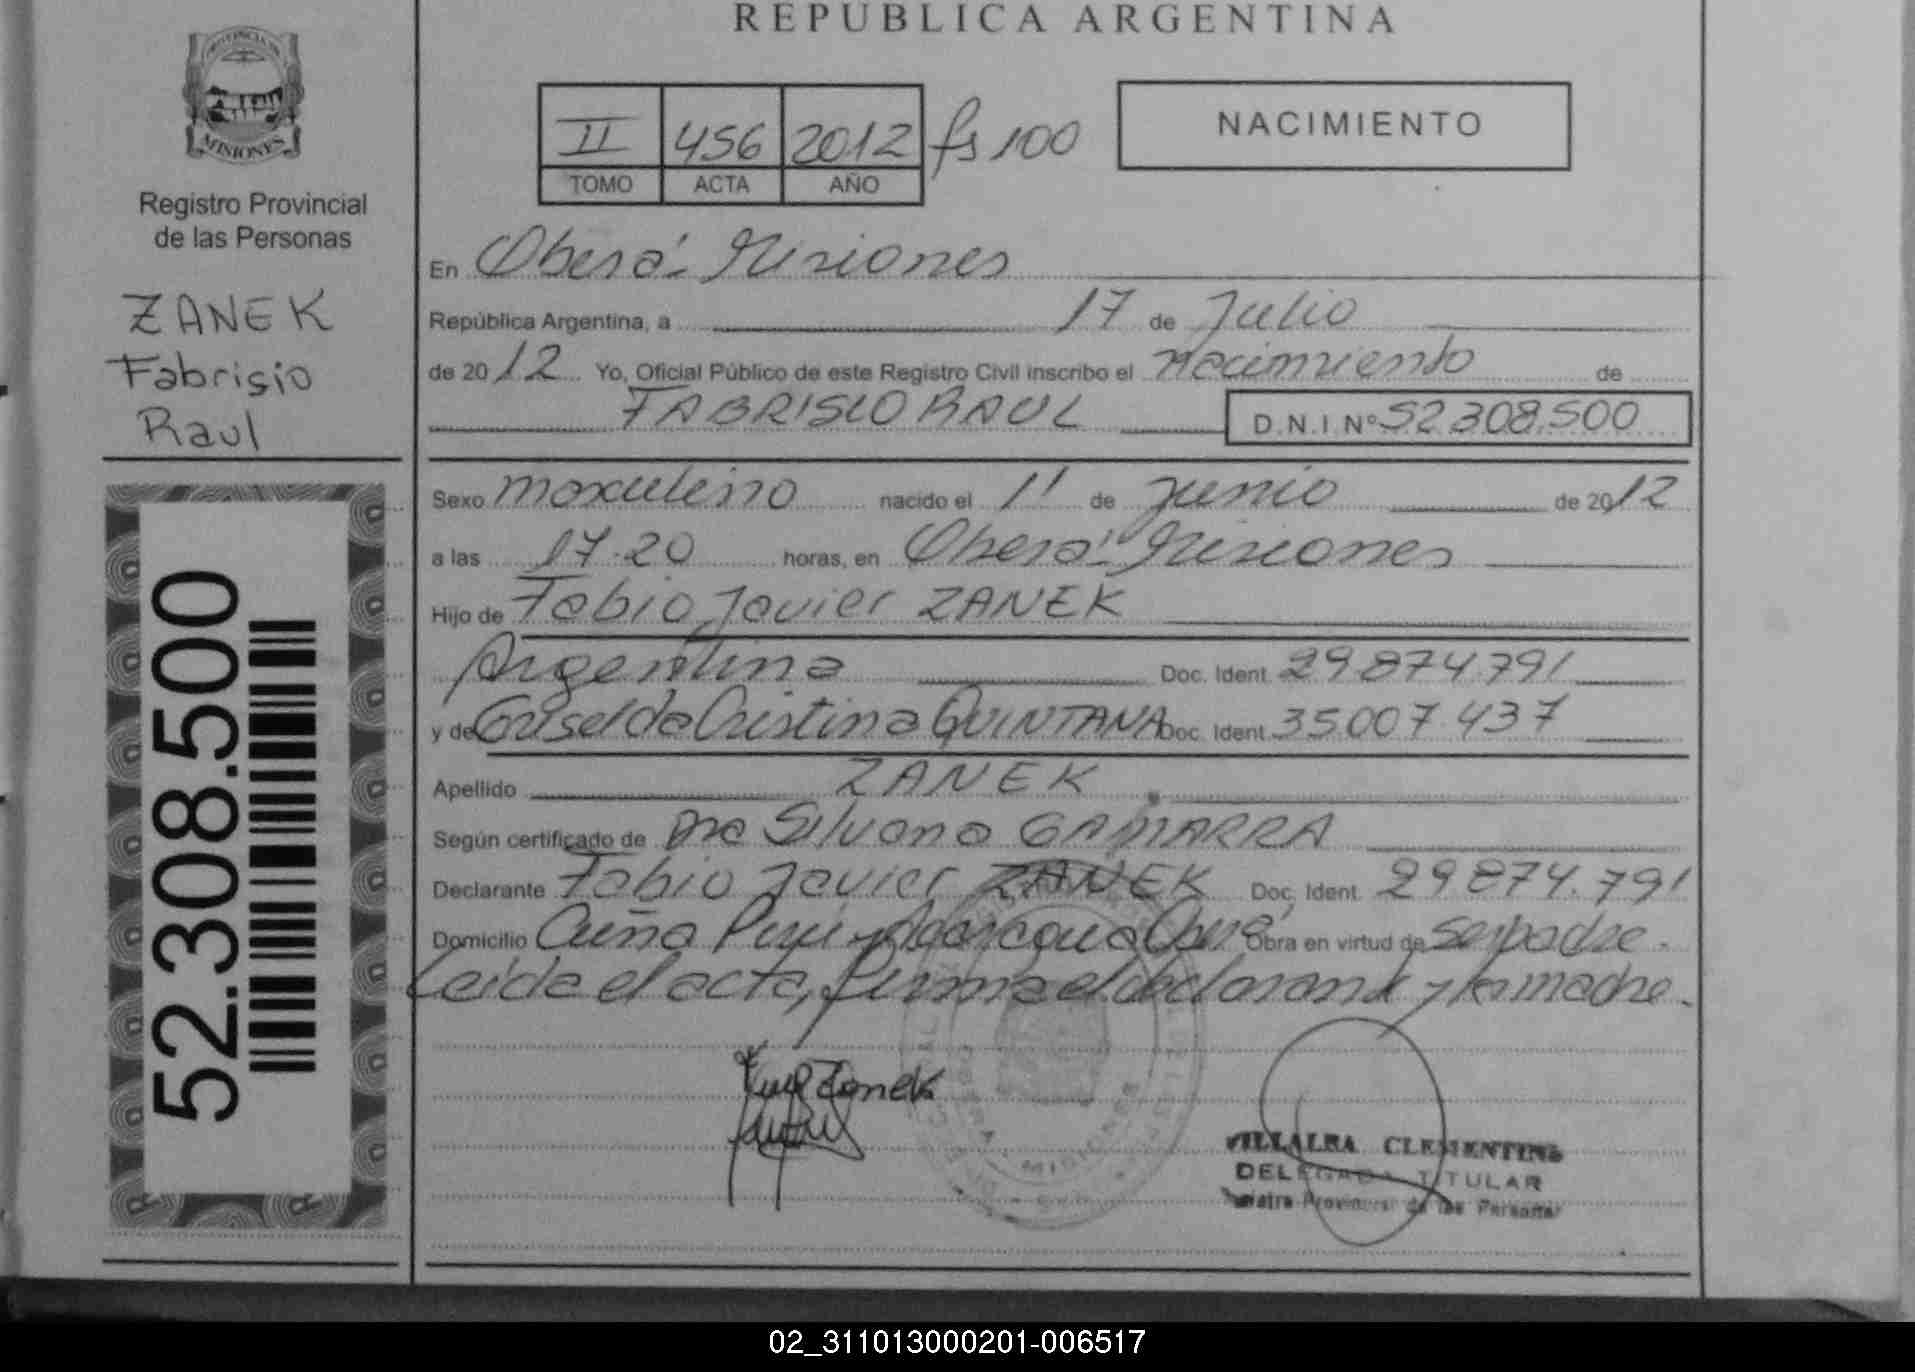 REPUBLICA ARGENTINA
PROVINCIA DE
MISIONES
Registro Provincial
de las Personas
ZANEK
Fabrisio
Raul
52.308.500
II 456 2012 fs 100
TOMO ACTA AÑO
NACIMIENTO
En Oberá - Misiones
República Argentina, a 17 de Julio
de 2012 Yo, Oficial Público de este Registro Civil inscribo el Nacimiento de
FABRISIO RAUL D.N.I.Nº 52.308.500
Sexo masculino nacido el 11 de Junio de 2012
a las 17.20 horas, en Oberá - Misiones
Hijo de Fabio Javier ZANEK
Argentina Doc. Ident. 29.874.791
y de Griselda Cristina QUINTANA Doc. Ident. 35.007.437
Apellido ZANEK
Según certificado de Dra Silvana GAMARRA
Declarante Fabio Javier ZANEK Doc. Ident. 29.874.791
Domicilio Cuña Pirú y Obra en virtud de ser padre.
Leída el acta, firma el declarante y la madre.
Zanek
VILLALBA CLEMENTINA
DELEGADA TITULAR
Registro Provincial de las Personas
02_311013000201-006517